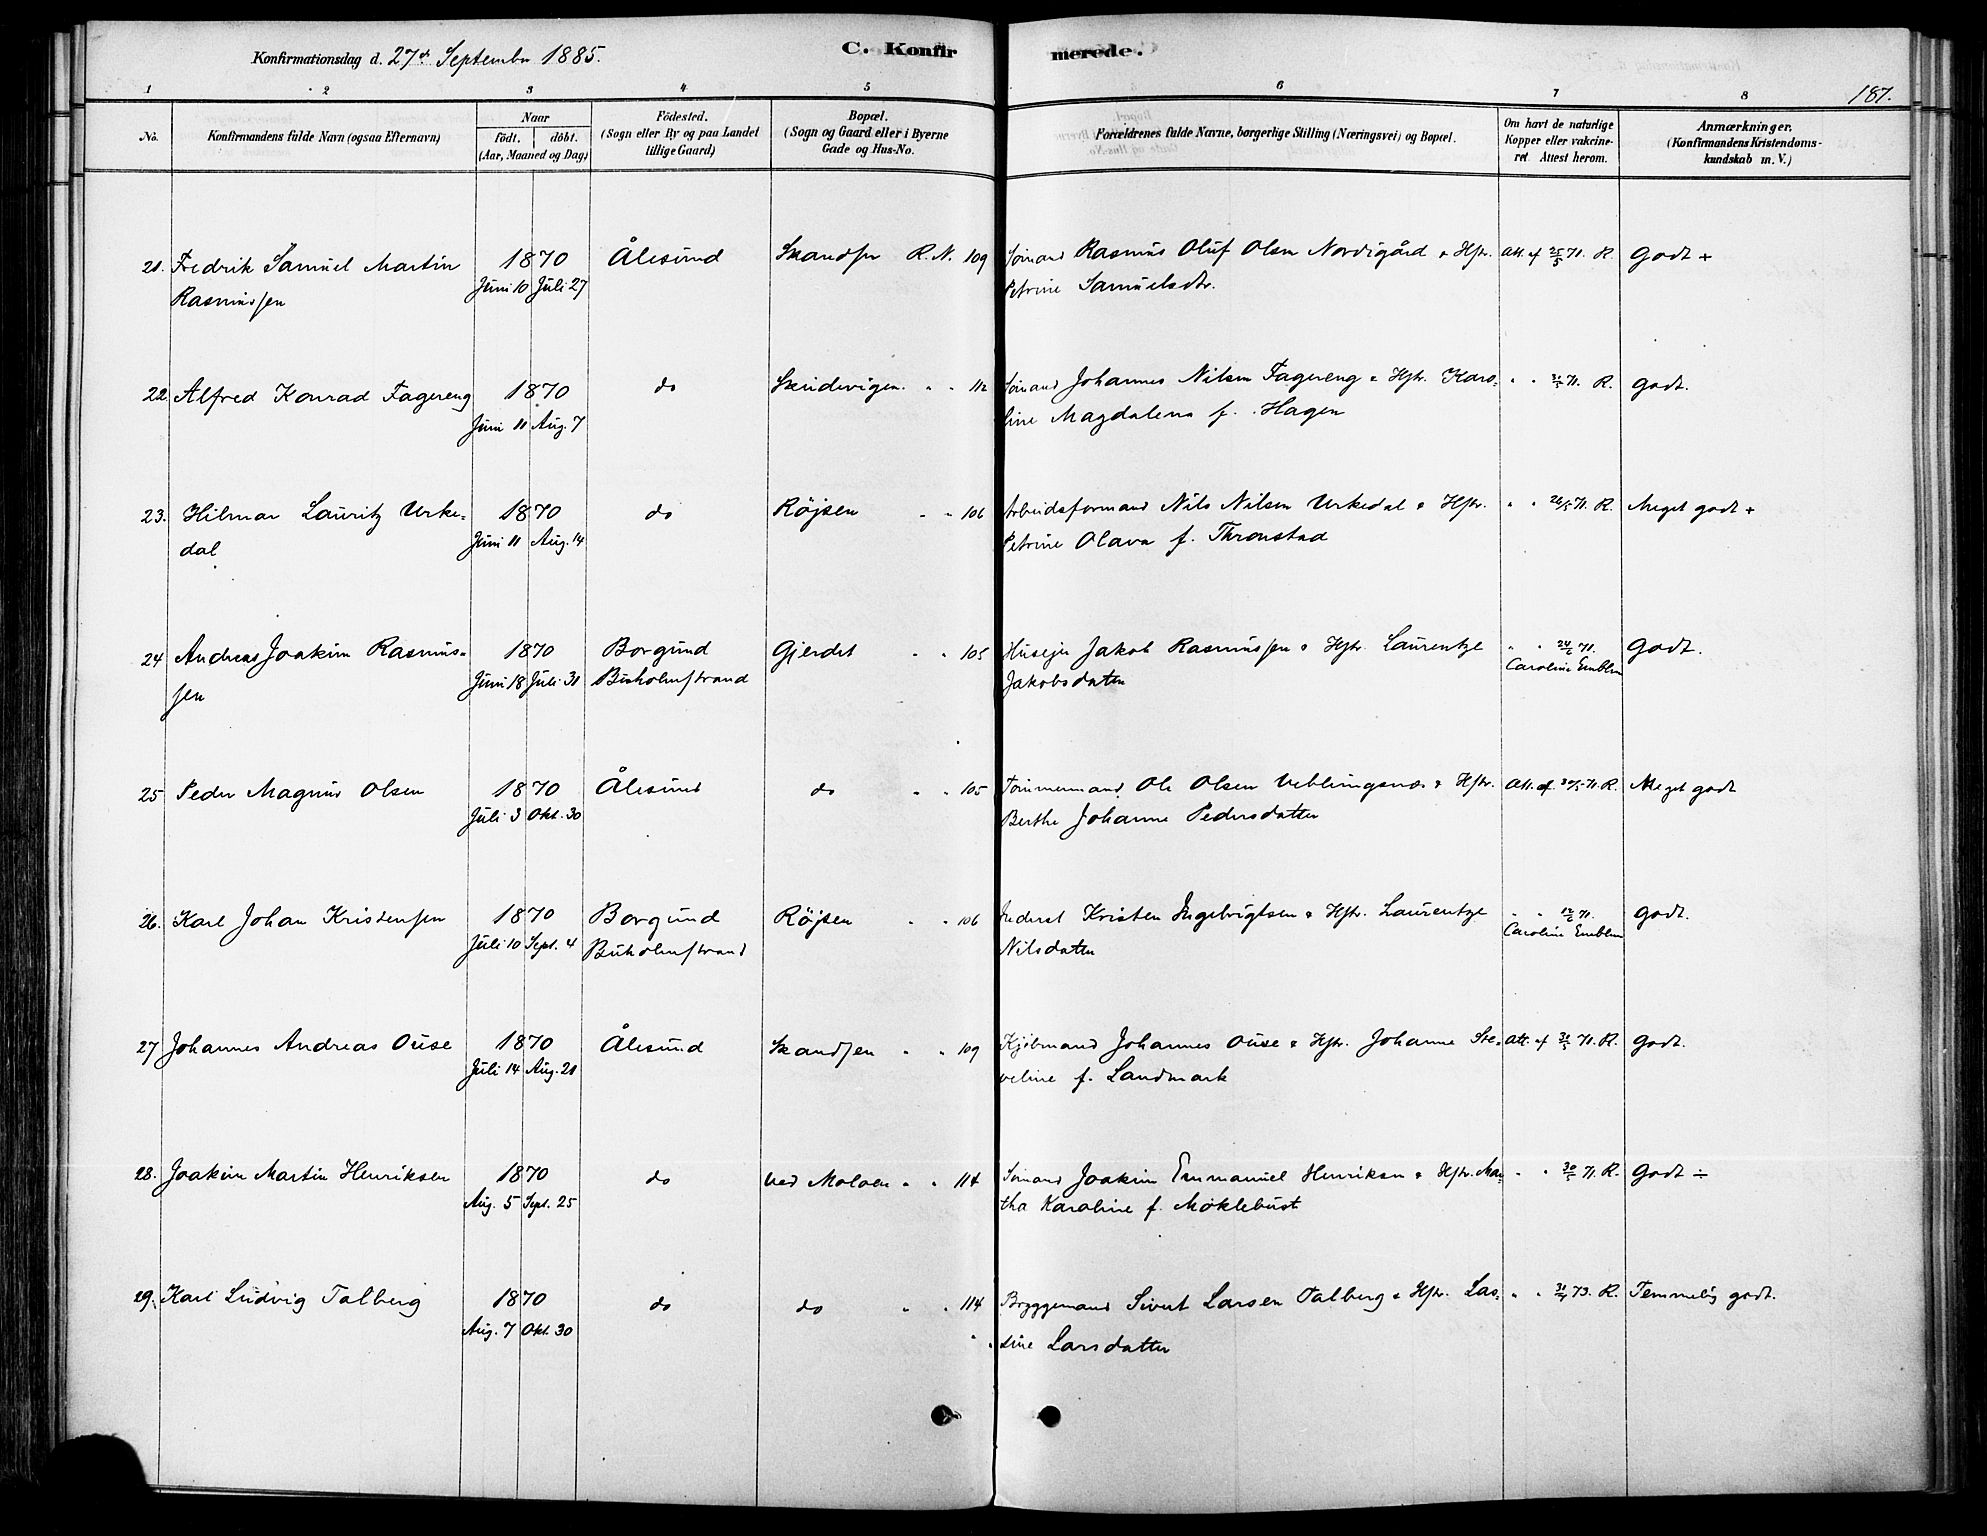 Konfirmationsdag d. 27de September 1885.
C. Konfir merede.
187.
1 2 3 4 5 6 7 8
No.
Konfirmandens fulde Navn (ogsaa Efternavn)
Naar
födt. döbt.
(Aar, Maaned og Dag)
Födested.
(Sogn eller By og paa Landet
tillige Gaard)
Bopæl.
(Sogn og Gaard eller i Byerne
Gade og Hus-No.
Forældrenes fulde Navne, borgerlige Stilling (Næringsvei) og Bopæl.
Om havt de naturlige
Kopper eller vakcine-
ret Attest herom.
Anmærkninger.
(Konfirmandens Kristendoms-
kundskab m. V.)
21. Fredrik Samuel Martin 1870 Ålesund Skandsen R. N. 109 Sømand Rasmus Oluf Olsen Nordigård & Hstr. Att. af 25/5 71. R. Godt +
Rasmussen Juni 10 Juli 27 Petrine Samuelsdtr.
22. Alfred Konrad Fagereng 1870 do Skudevigen " " 112 Sømand Johannes Nilsen Fagereng & Hstr. Karo- " " 71. R. Godt.
Juni 11 Aug. 7 line Magdalena f. Hagen
23. Hilmar Lauritz Urke- 1870 do Røjsen " " 106 Arbeidsformand Nils Nilsen Urkedal & Hstr. " " 26/5 71. R. Meget godt +
dal Juni 11 Aug. 14 Petrine Olava f. Thronstad
24 Andreas Joakim Rasmus- 1870 Borgund Gjerdet " " 105 Husejer Jakob Rasmussen & Hstr. Laurentze " " 24/6 71. Godt.
sen Juni 18 Juli 31 Buholmstrand Jakobsdatter Caroline Emblem
25 Peder Magnus Olsen 1870 Ålesund do " " 105 Tømmermand Ole Olsen Veblungsnes & Hstr. Att. af 30/5 71. R. Meget godt
Juli 3 Okt. 30 Berthe Johanne Pedersdatter
26. Karl Johan Kristensen 1870 Borgund Røjsen " " 106 Inderst Kristen Ingebrigtsen & Hstr. Laurentze " " 12/6 71. Godt.
Juli 10 Sept. 4 Buholmstrand Nilsdatter Caroline Emblem
27 Johannes Andreas Ouse 1870 Ålesund Skandsen " " 109 Kjøbmand Johannes Ouse & Hstr. Johanne Ste- Att. af 71. R. Godt.
Juli 14 Aug. 21 veline f. Landmark
28. Joakim Martin Henriksen 1870 do ved Moloen " " 114 Sømand Joakim Emmanuel Henriksen & Hstr. Mar- " " 30/5 71. R. Godt ÷
Aug. 5 Sept. 25 tha Karoline f. Møklebust
29. Karl Ludvig Talberg 1870 do do " " 114 Bryggemand Sivert Larsen Talberg & Hstr. Las- " " 73. R. Temmelig godt.
Aug. 7 Okt. 30 sine Larsdatter